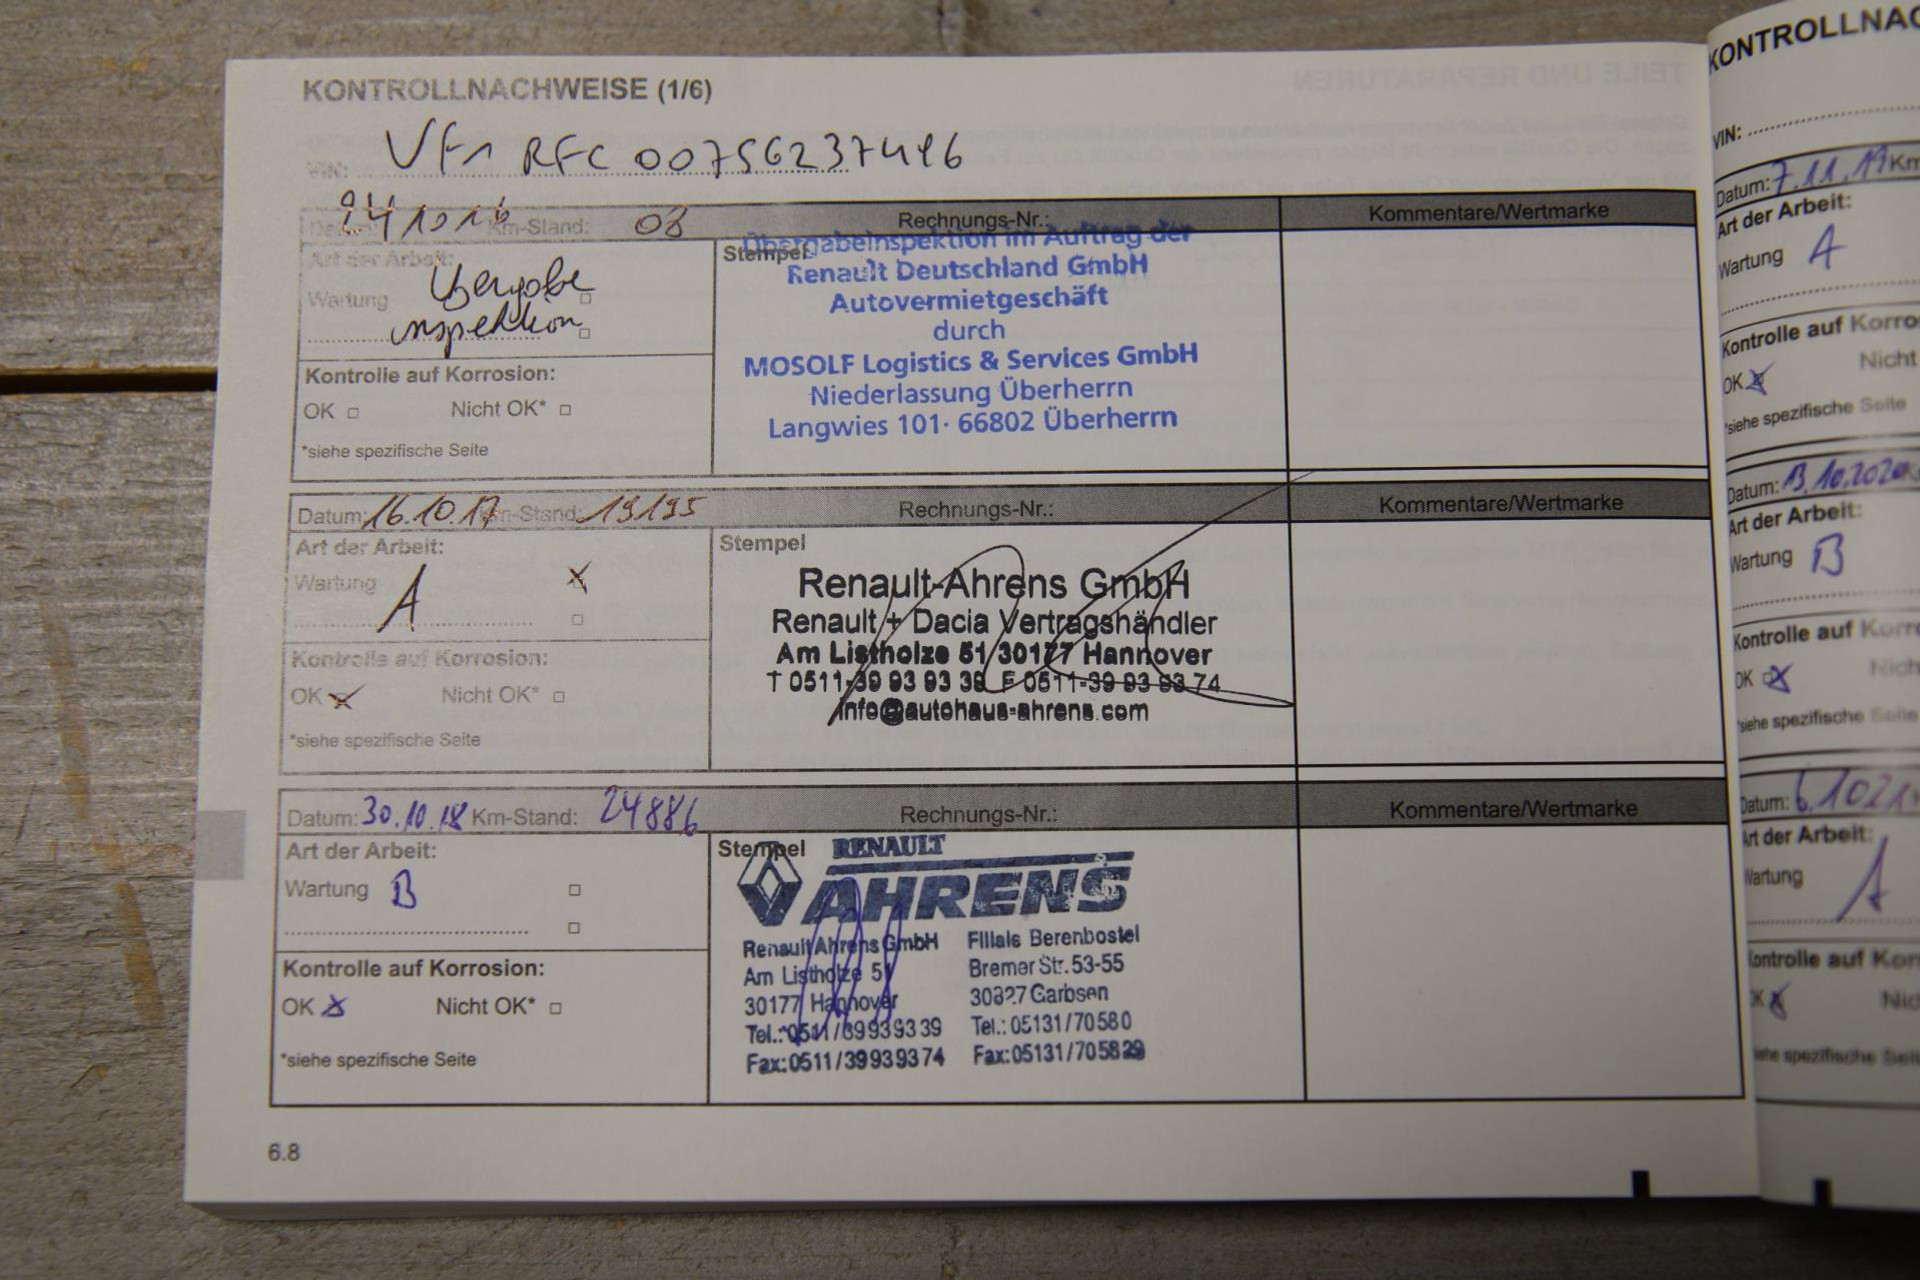 KONTROLLNACHWEISE (1/6)
VIN: VF1 RFC 00756237416
Datum: 24 10 16 Km-Stand: 08 Rechnungs-Nr.: Kommentare/Wertmarke
Art der Arbeit:
Wartung Übergabe
inspektion
Kontrolle auf Korrosion:
OK Nicht OK*
*siehe spezifische Seite
Stempel
Übergabeinspektion im Auftrag der
Renault Deutschland GmbH
Autovermietgeschäft
durch
MOSOLF Logistics & Services GmbH
Niederlassung Überherrn
Langwies 101· 66802 Überherrn
Datum: 16.10.17 Km-Stand: 19195 Rechnungs-Nr.: Kommentare/Wertmarke
Art der Arbeit:
Wartung A
Kontrolle auf Korrosion:
OK Nicht OK*
*siehe spezifische Seite
Stempel
Renault-Ahrens GmbH
Renault + Dacia Vertragshändler
Am Listholze 51 30177 Hannover
T 0511-39 93 93 39 F 0511-39 93 93 74
info@autohaus-ahrens.com
Datum: 30.10.18 Km-Stand: 24886 Rechnungs-Nr.: Kommentare/Wertmarke
Art der Arbeit:
Wartung B
Kontrolle auf Korrosion:
OK Nicht OK*
*siehe spezifische Seite
Stempel
RENAULT
AHRENS
Renault Ahrens GmbH
Am Listholze 51
30177 Hannover
Tel.: 0511/39939339
Fax: 0511/39939374
Filiale Berenbostel
Bremer Str. 53-55
30827 Garbsen
Tel.: 05131/70580
Fax: 05131/705829
6.8
KONTROLLNAC
VIN:
Datum: 7.11.19 Km
Art der Arbeit:
Wartung A
Kontrolle auf Korro
OK Nicht
*siehe spezifische Seite
Datum: 13.10.2020
Art der Arbeit:
Wartung B
Kontrolle auf Korr
OK Nich
*siehe spezifische Seite
Datum: 6.1021
Art der Arbeit:
Wartung A
Kontrolle auf Kor
OK Nic
siehe spezifische Seit